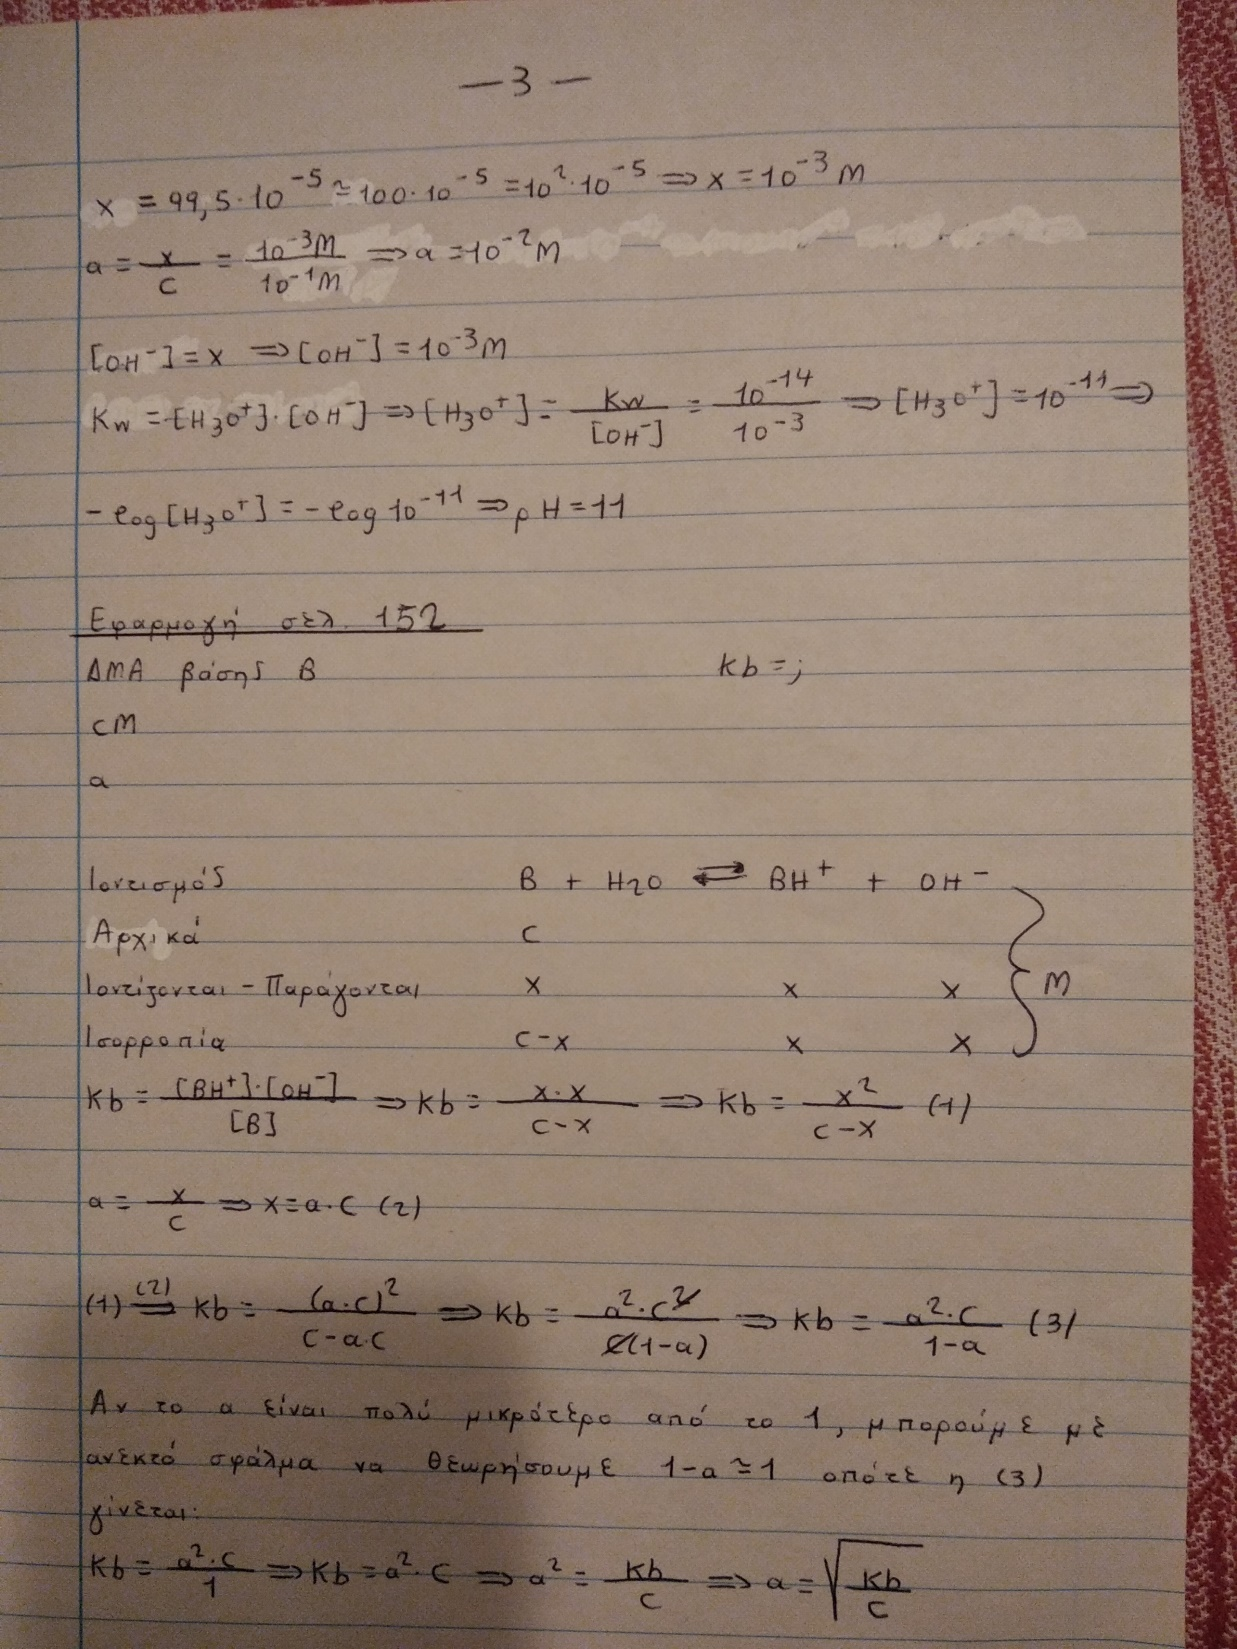 — 3 —
x = 99,5·10⁻⁵ ≃ 100·10⁻⁵ = 10²·10⁻⁵ ⇒ x = 10⁻³ M
a = x/c = 10⁻³M/10⁻¹M ⇒ a = 10⁻² M
[OH⁻] = x ⇒ [OH⁻] = 10⁻³ M
Kw = [H3O⁺]·[OH⁻] ⇒ [H3O⁺] = Kw/[OH⁻] = 10⁻¹⁴/10⁻³ ⇒ [H3O⁺] = 10⁻¹¹ ⇒
-log[H3O⁺] = -log10⁻¹¹ ⇒ pH = 11
Εφαρμογή σελ. 152
ΔΜΑ βάσης Β kb = ;
cM
a
Ιοντισμός B + H2O ⇌ BH⁺ + OH⁻
Αρχικά c
Ιοντίζονται - Παράγονται x x x } M
Ισορροπία c-x x x
kb = [BH⁺]·[OH⁻]/[B] ⇒ kb = x·x/(c-x) ⇒ kb = x²/(c-x) (1)
a = x/c ⇒ x = a·c (2)
(1) (2)⇒ kb = (a·c)²/(c-a·c) ⇒ kb = a²·c²/c(1-a) ⇒ kb = a²·c/(1-a) (3)
Αν το a είναι πολύ μικρότερο από το 1, μπορούμε με
ανεκτό σφάλμα να θεωρήσουμε 1-a ≃ 1 οπότε η (3)
γίνεται:
kb = a²·c/1 ⇒ kb = a²·c ⇒ a² = kb/c ⇒ a = √(kb/c)